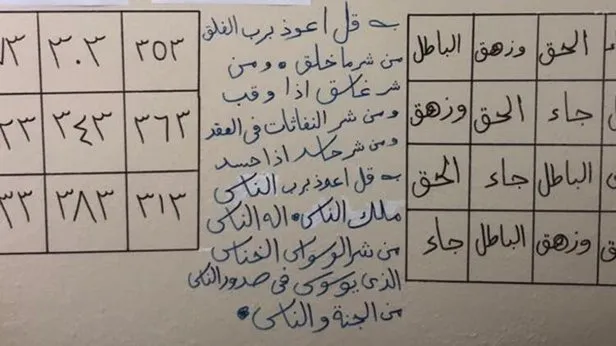 الحق وزهق الباطل
جاء الحق وزهق
الباطل جاء الحق
وزهق الباطل جاء
قل اعوذ برب الفلق
من شر ما خلق • ومن
شر غاسق اذا وقب
ومن شر النفاثات فى العقد
ومن شر حاسد اذا حسد
قل اعوذ برب الناس
ملك الناس • اله الناس
من شر الوسواس الخناس
الذى يوسوس فى صدور الناس
من الجنة والناس •
٣٥٣ ٣٠٣
٣٦٣ ٣٤٣
٣١٣ ٣٨٣